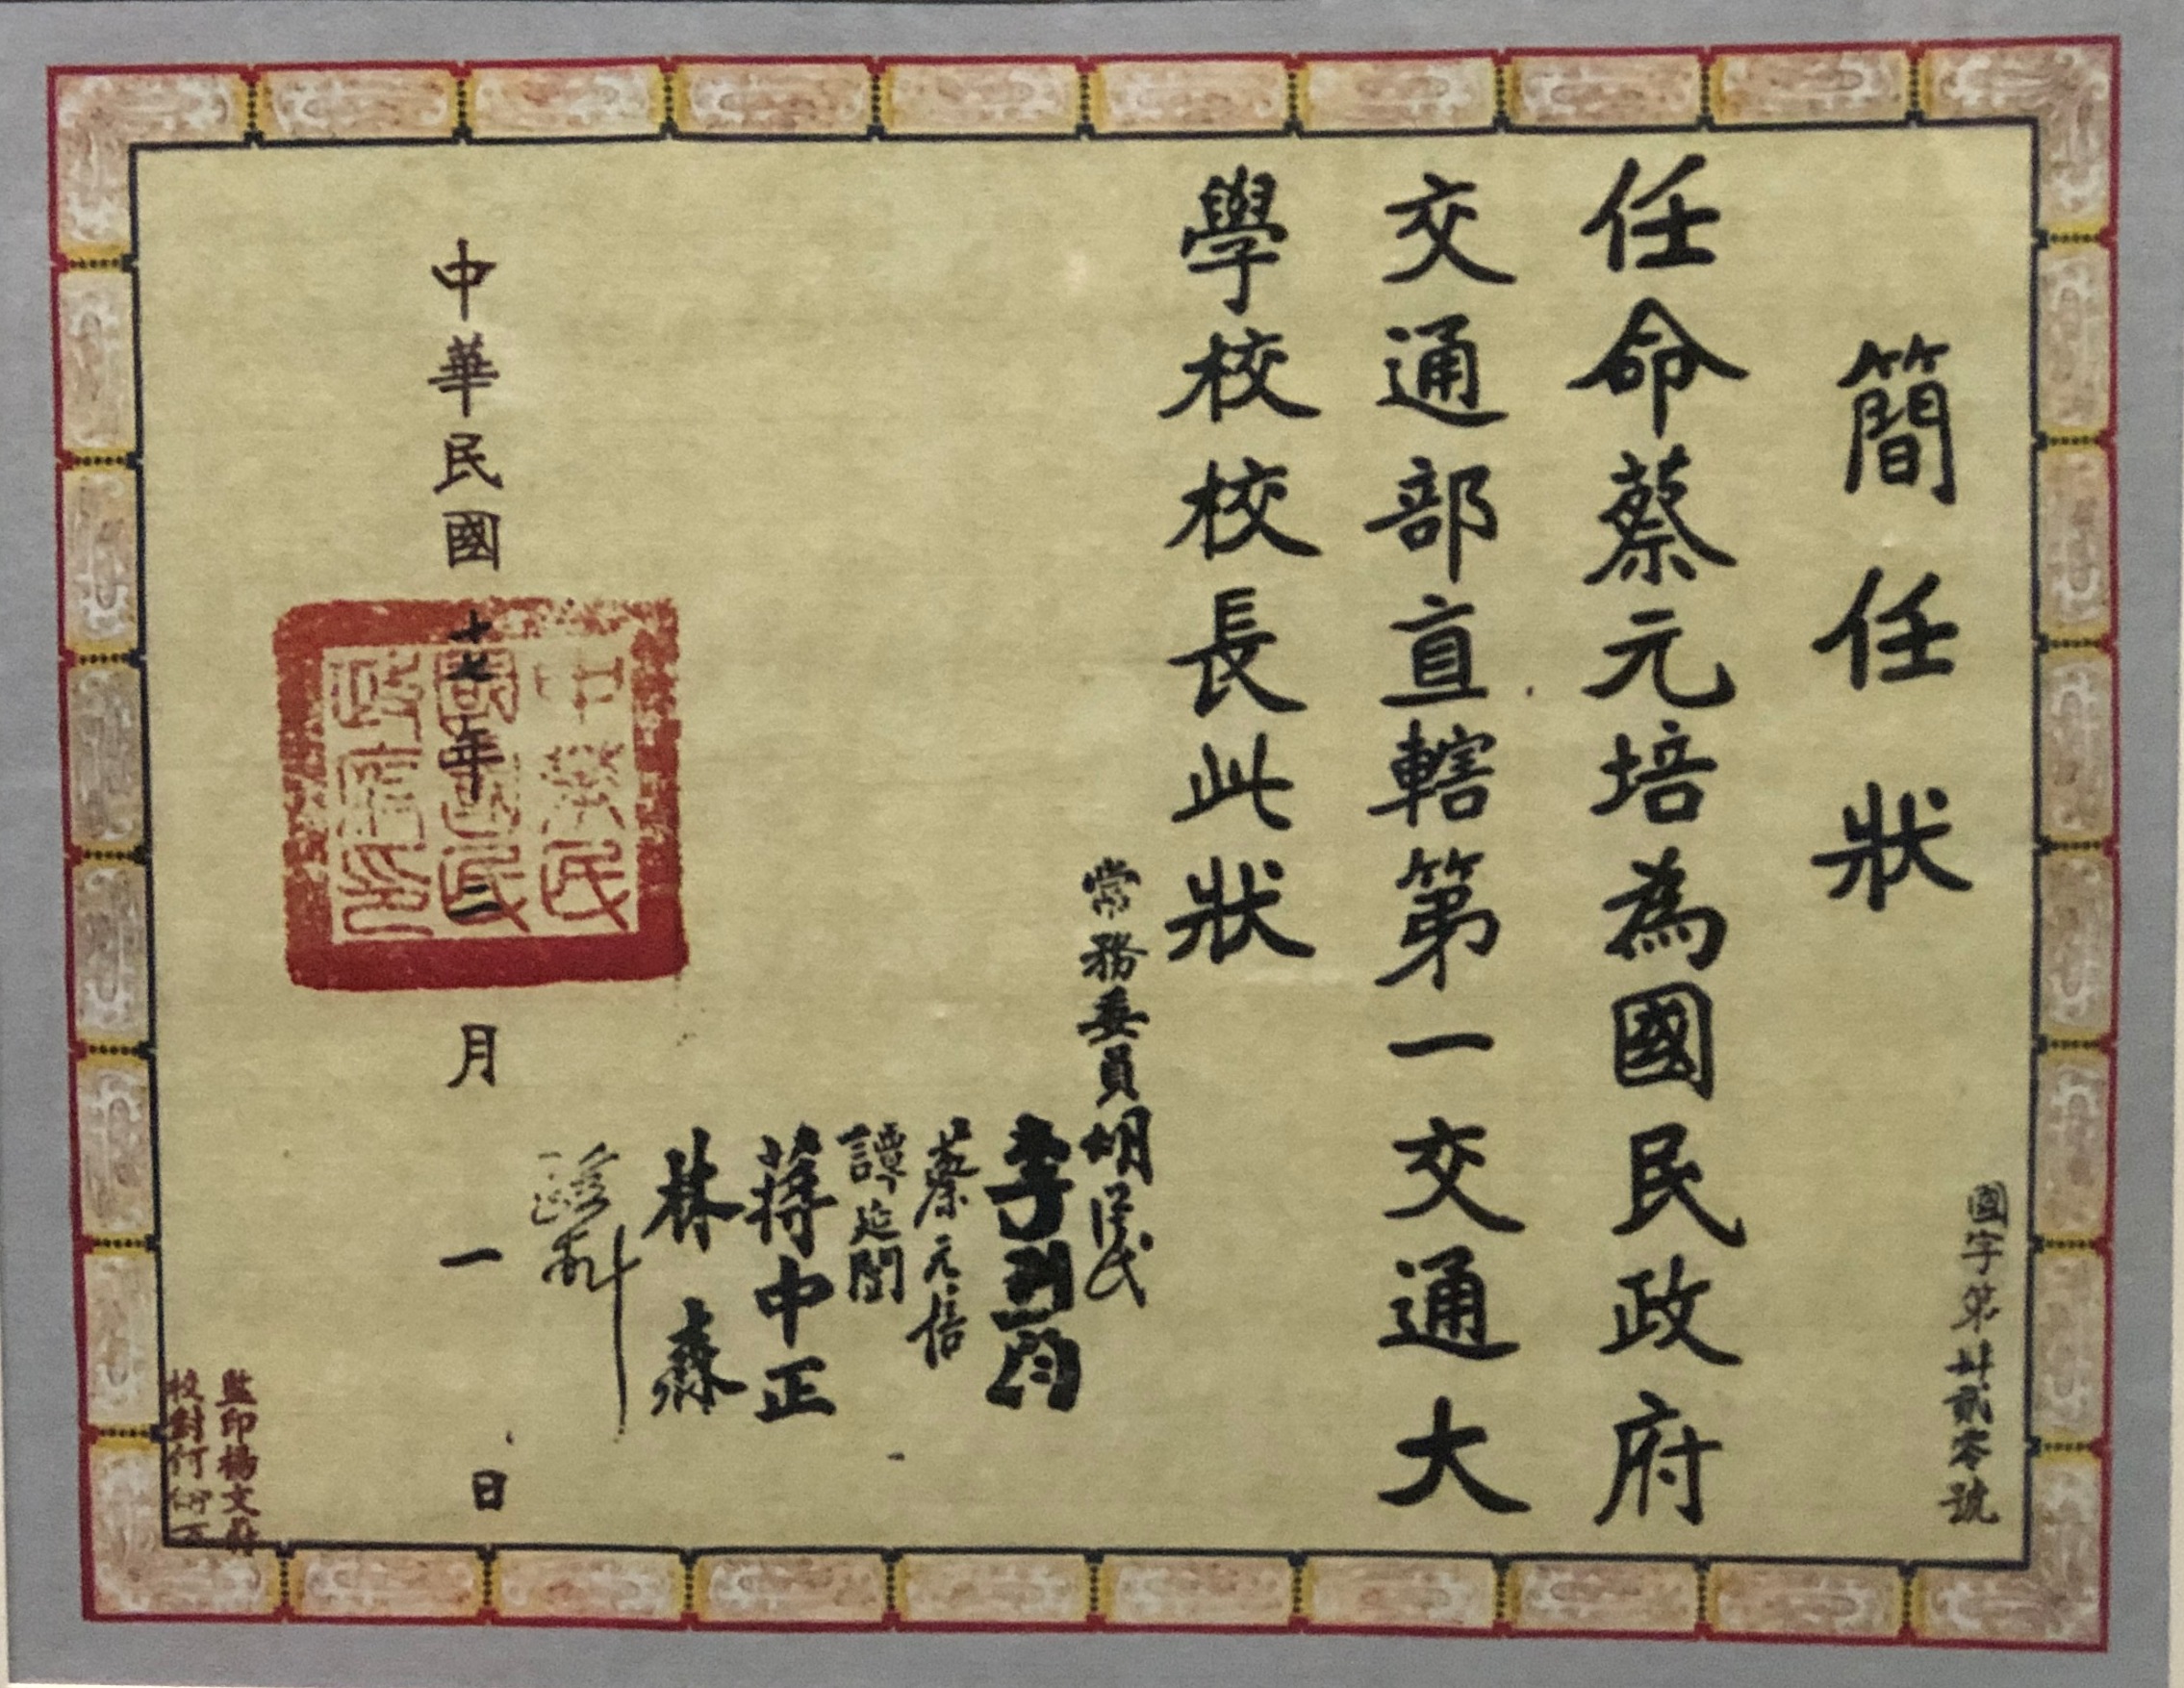 簡任狀
國字第廿貳零號
任命蔡元培為國民政府
交通部直轄第一交通大
學校校長此狀
常務委員胡漢民
李烈鈞
蔡元培
譚延闓
蔣中正
林森
中華民國十七年二月一日
中華民
國國民
政府印
監印楊文
校對何